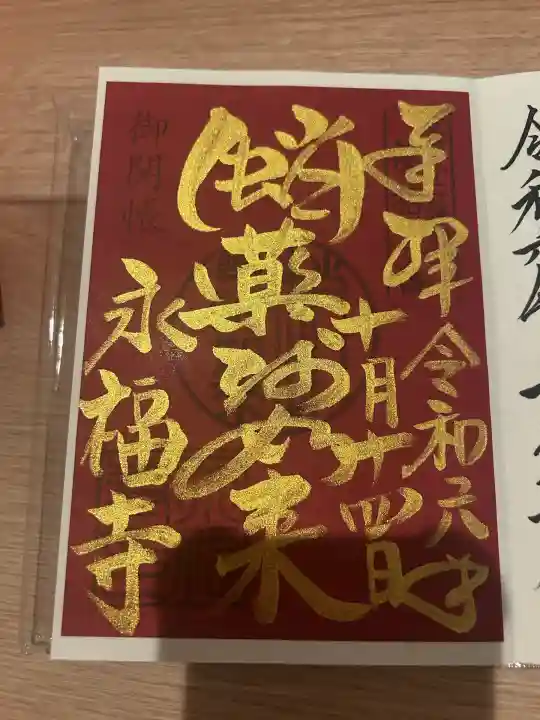 令和
奉拝 令和元年
十月廿四日
蛸薬師如来
御開帳
永福寺